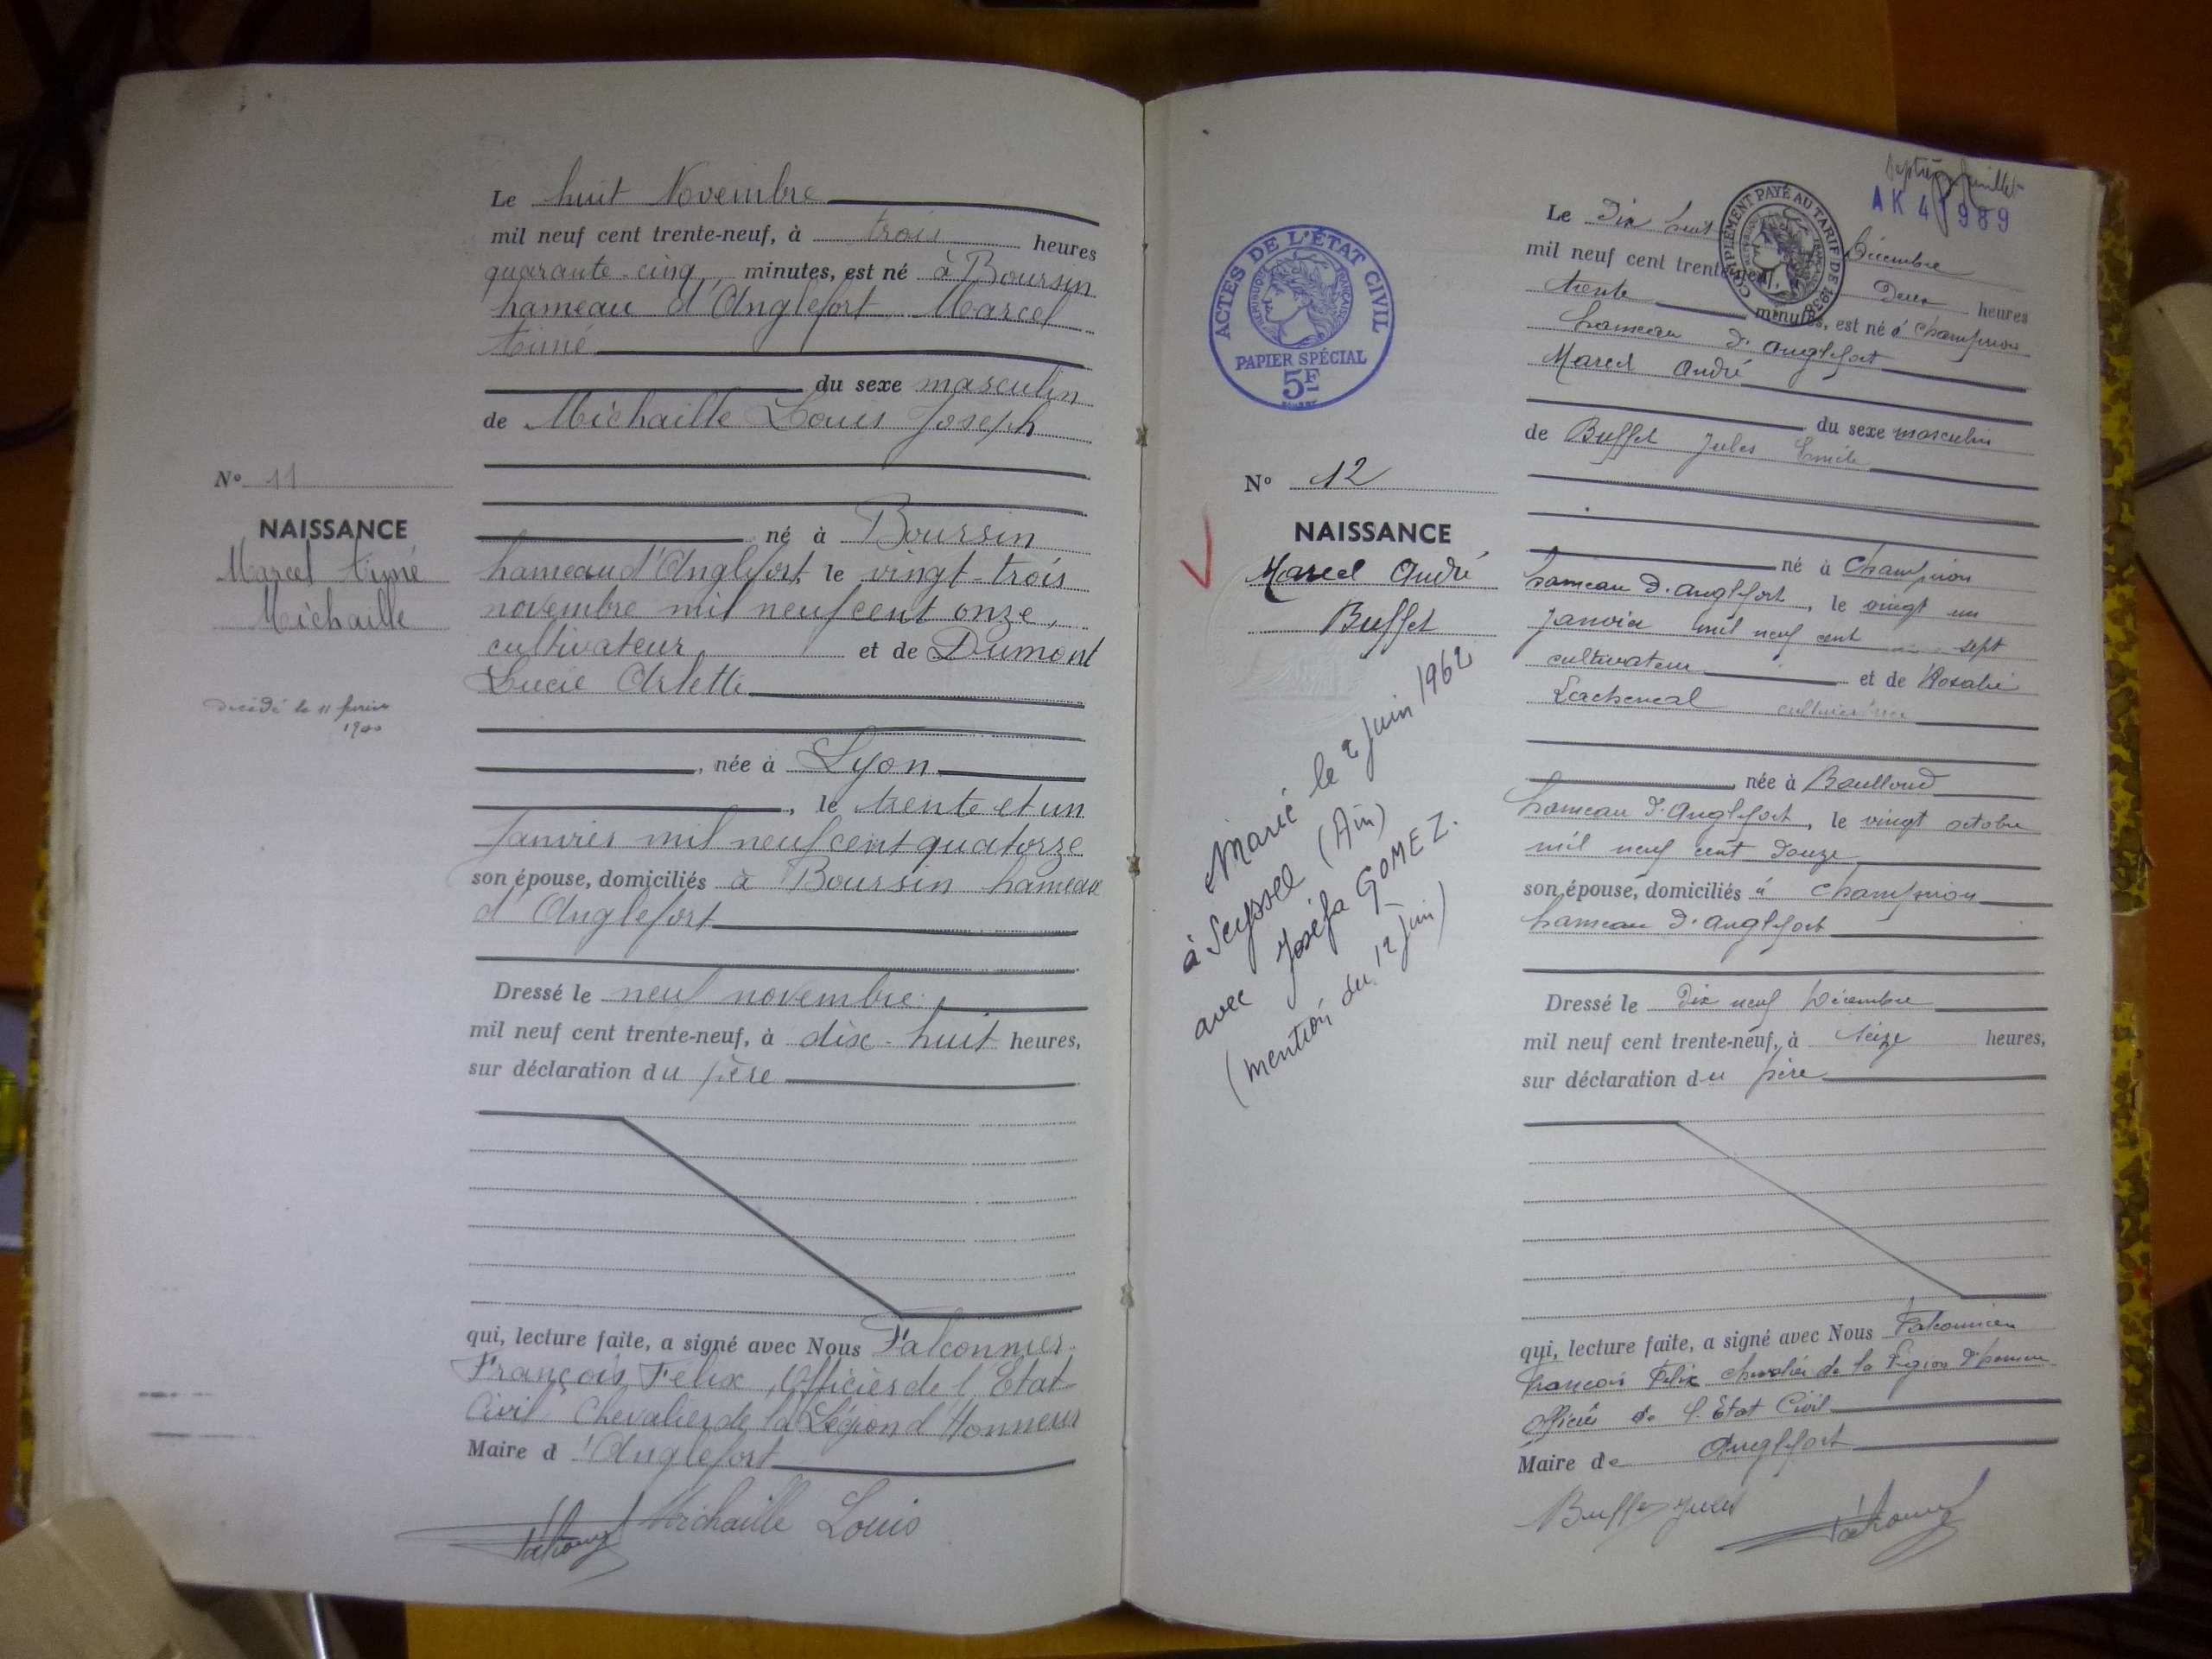 Le huit Novembre
mil neuf cent trente-neuf, à trois heures
quarante-cinq, minutes, est né à Boursin
hameau d'Anglefort Marcel
Aimé
du sexe masculin
de Michaille Louis Joseph
né à Boursin
hameau d'Anglefort, le vingt-trois
novembre mil neuf cent onze,
cultivateur et de Dumont
Lucie Arlette
, née à Lyon
, le trente et un
Janvier mil neuf cent quatorze
son épouse, domiciliés à Boursin hameau
d'Anglefort
Dressé le neuf novembre
mil neuf cent trente-neuf, à dix-huit heures,
sur déclaration du père
qui, lecture faite, a signé avec Nous Falconnier
François Félix, Officier de l'Etat
Civil Chevalier de la Légion d'Honneur
Maire d'Anglefort
Michaille Louis
N° 11
NAISSANCE
Marcel Aimé
Michaille
Décédé le 11 février
septième feuillet
AK 4 989
COMPLÉMENT PAYÉ AU TARIF DE 193
ACTES DE L'ÉTAT CIVIL
RÉPUBLIQUE FRANÇAISE
PAPIER SPÉCIAL
5F
N° 12
NAISSANCE
Marcel André
Buffet
Marié le 2 Juin 1962
à Seyssel (Ain)
avec Joséfa GOMEZ.
(mention du 12 Juin)
Le Dix huit Décembre
mil neuf cent trente-neuf, Deux heures
trente minutes, est né à Champrion
hameau d'Anglefort
Marcel André
du sexe masculin
de Buffet Jules Emile
né à Champrion
hameau d'Anglefort, le vingt un
Janvier mil neuf cent sept
cultivateur et de Rosalie
Lachenal cultivatrice
née à
hameau d'Anglefort, le vingt octobre
mil neuf cent douze
son épouse, domiciliés à Champrion
hameau d'Anglefort
Dressé le Dix neuf Décembre
mil neuf cent trente-neuf, à seize heures,
sur déclaration du père
qui, lecture faite, a signé avec Nous Falconnier
François Félix Chevalier de la Légion d'honneur
Officier de l'Etat Civil
Maire de Anglefort
Buffet Jules